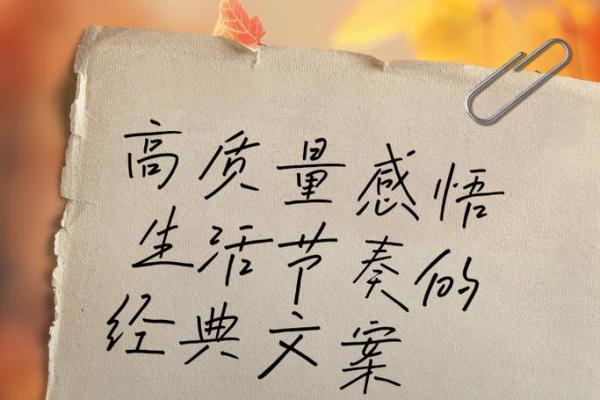 高质量感悟
生活节奏的
经典文案